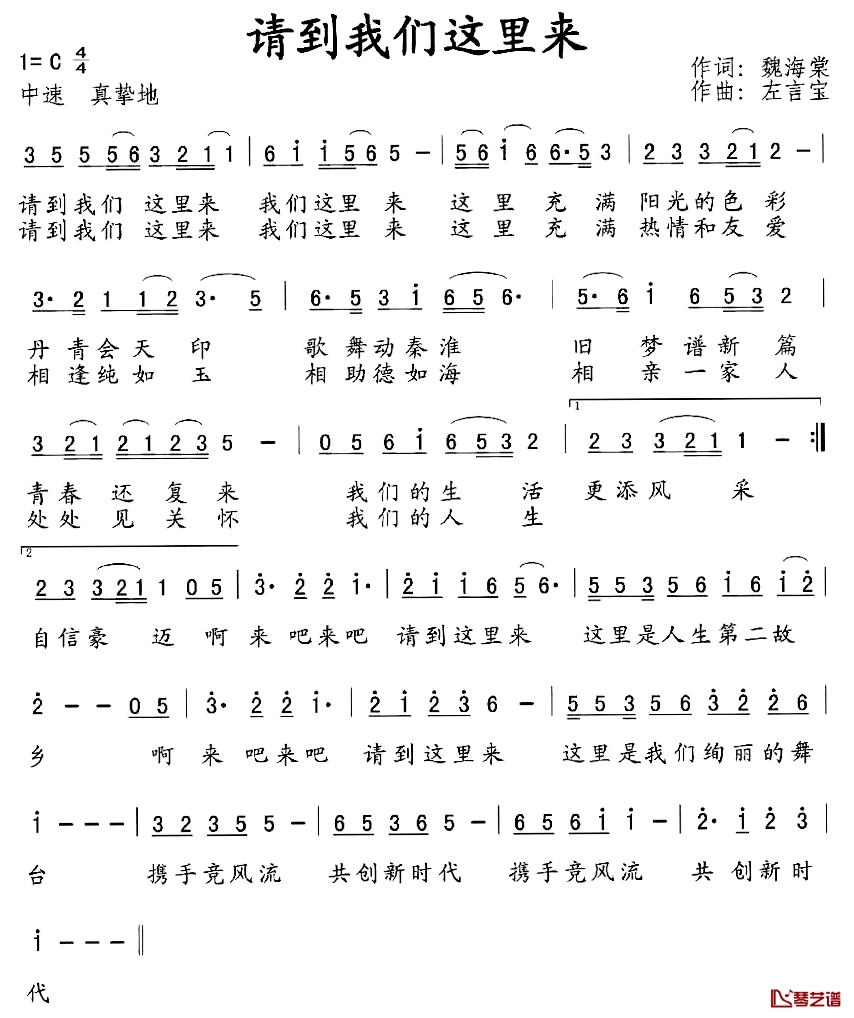 请到我们这里来
1= C 4/4
作词：魏海棠
中速 真挚地
作曲：左言宝
3 5 5 5 6 3 2 1 1 | 6 i i 5 6 5 — | 5 6 i 6 6· 5 3 | 2 3 3 2 1 2 — |
请到我们 这里来 我们这里 来 这 里 充 满 阳光的色 彩
请到我们 这里来 我们这里 来 这 里 充 满 热情和友 爱
3· 2 1 1 2 3· 5 | 6· 5 3 i 6 5 6· | 5· 6 i 6 5 3 2 |
丹 青会天 印 歌 舞动秦淮 旧 梦 谱新 篇
相 逢纯如 玉 相 助德如海 相 亲 一家 人
3 2 1 2 1 2 3 5 — | 0 5 6 i 6 5 3 2 | 1 2 3 3 2 1 1 — :||
青春 还 复 来 我们的生 活 更添风 采
处处 见 关 怀 我们的人 生
2
2 3 3 2 1 1 0 5 | 3· 2 2 i· | 2 i i 6 5 6· | 5 5 3 5 6 i 6 i 2 |
自信豪 迈 啊 来 吧来吧 请到这里来 这里是人生第二故
2 — — 0 5 | 3· 2 2 i· | 2 i 2 3 6 — | 5 5 3 5 6 3 2 2 6 |
乡 啊 来 吧来吧 请到这里来 这里是我们绚丽的舞
i — — — | 3 2 3 5 5 — | 6 5 3 6 5 — | 6 5 6 i i — | 2· i 2 3 |
台 携手竞风流 共创新时代 携手竞风流 共 创新时
i — — — ||
代
琴艺谱